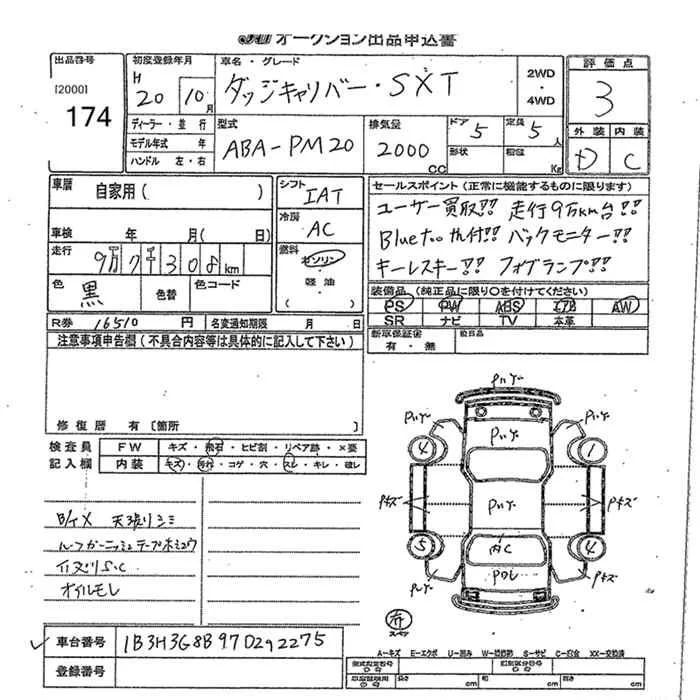 オークション出品申込書
出品番号
[2000]
174
初度登録年月
H
20 10月
車名・グレード
ダッジキャリバー・SXT
2WD
・
4WD
評価点
3
外装 内装
D C
ディーラー・並行
モデル年式 年
ハンドル 左・右
型式
ABA-PM20
排気量
2000cc
ドア 5
定員 5人
形状
Kg
車歴
自家用( )
車検 年 月( 日)
走行
9万7千308km
色
黒
色替
色コード
シフト
IAT
冷房
AC
燃料
ガソリン
・
軽油
セールスポイント(正常に機能するものに限ります)
ユーザー買取!! 走行9万km台!!
Bluetooth付!! バックモニター!!
キーレスキー!! フォグランプ!!
装備品(純正品に限り○を付けてください)
PS PW ABS エアB AW
SR ナビ TV 本革
新車保証書
有・無
後日品
R券 16510 円
名変通知期限 月 日
注意事項申告欄(不具合内容等は具体的に記入して下さい)
修復歴 有〔箇所 〕
検査員
記入欄
FW キズ・飛石・ヒビ割・リペア跡・×要
内装 キズ・汚れ・コゲ・穴・スレ・キレ・破レ
天張リシミ
オイルモレ
車台番号 1B3H3G8B97D292275
登録番号
4
1
5
4
内C
スペア
A－キズ E－エクボ U－凹み S－サビ C－腐食 XX－交換済
長さ cm
幅 cm
高さ cm